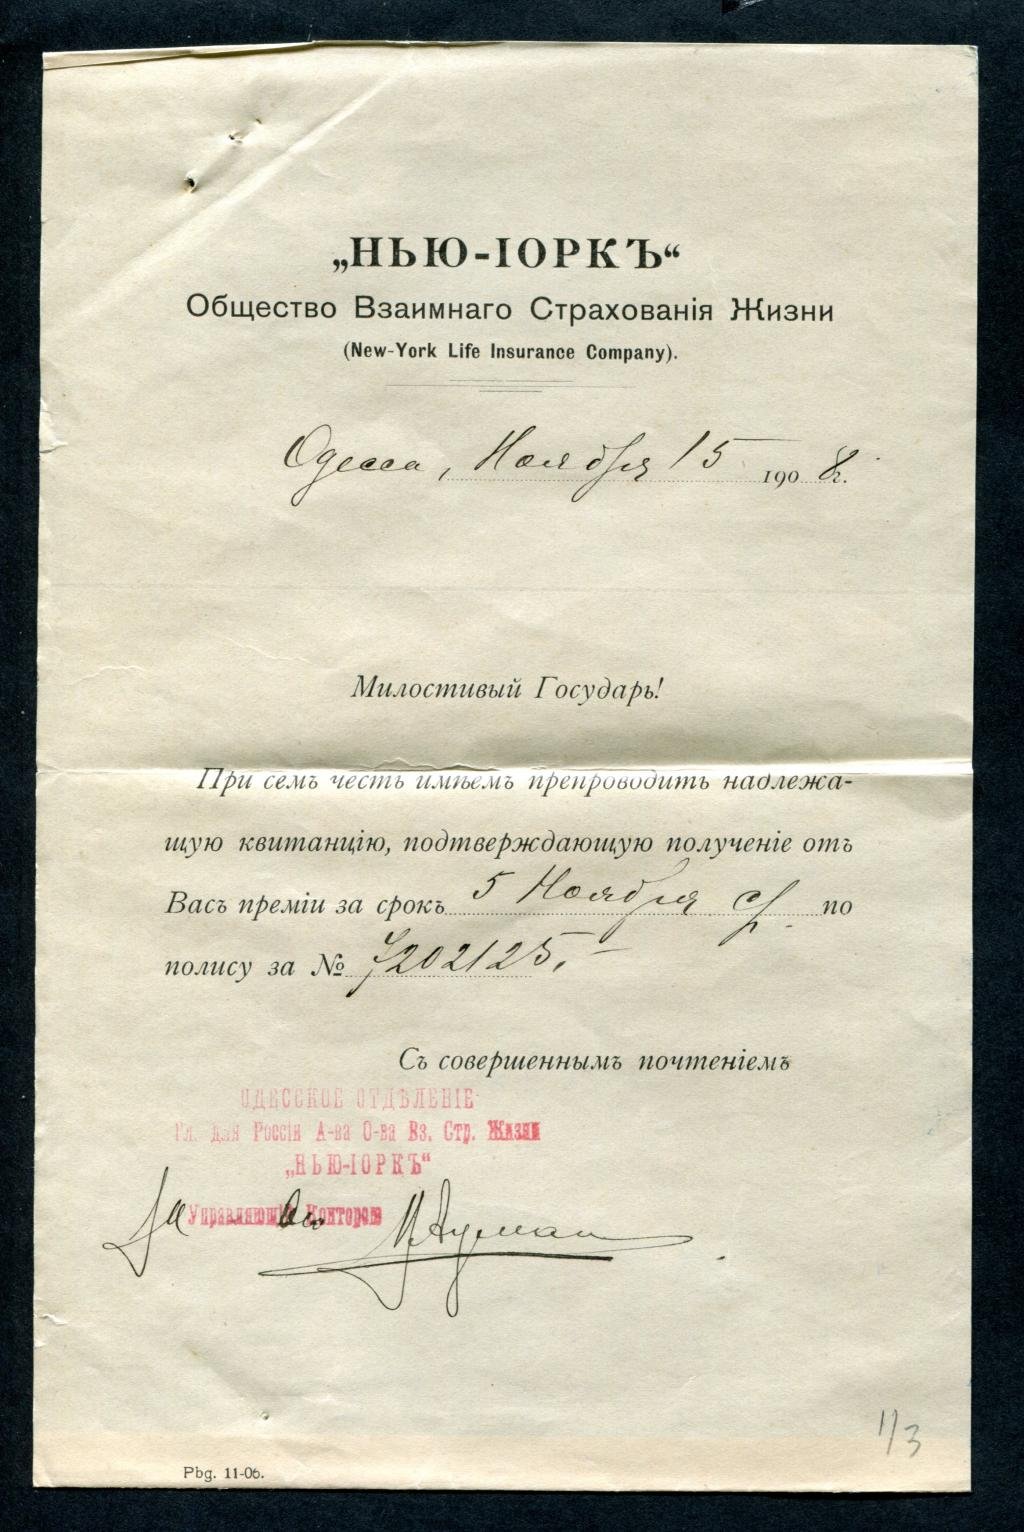 „НЬЮ-ІОРКЪ“
Общество Взаимнаго Страхованія Жизни
(New-York Life Insurance Company).
Одесса, Ноября 15 1908 г.
Милостивый Государь!
При семъ честь имѣемъ препроводить надлежа-
щую квитанцію, подтверждающую полученіе отъ
Васъ преміи за срокъ 5 Ноября с/г. по
полису за № 7202125.
Съ совершеннымъ почтеніемъ
ОДЕССКОЕ ОТДѢЛЕНІЕ
Гл. для Россіи А-ва О-ва Вз. Стр. Жизни
„НЬЮ-ІОРКЪ“
За Управляющаго Конторою
Pbg. 11-06.
1/3